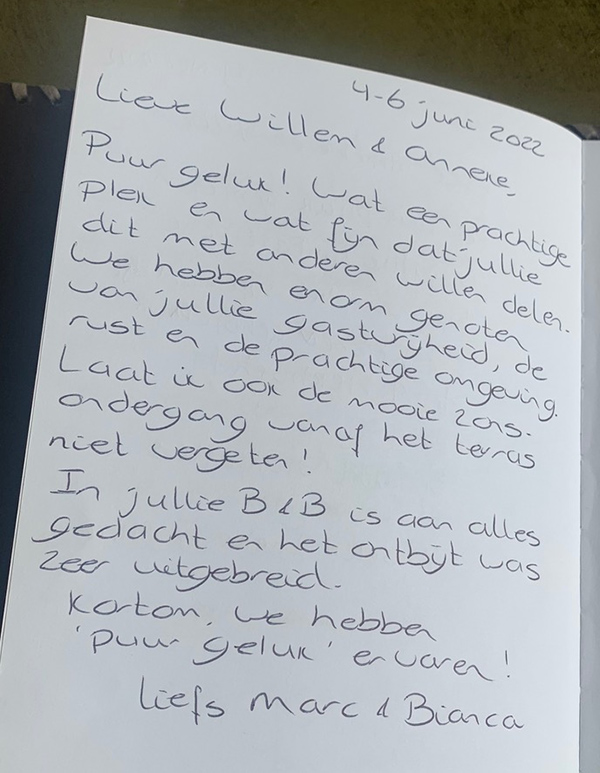 4-6 juni 2022
Lieve Willem & Anneke,
Puur geluk! Wat een prachtige
plek en wat fijn dat jullie
dit met anderen willen delen.
We hebben enorm genoten
van jullie gastvrijheid, de
rust en de prachtige omgeving.
Laat ik ook de mooie zons-
ondergang vanaf het terras
niet vergeten!
In jullie B&B is aan alles
gedacht en het ontbijt was
zeer uitgebreid.
Kortom, we hebben
'puur geluk' ervaren!
Liefs Marc & Bianca